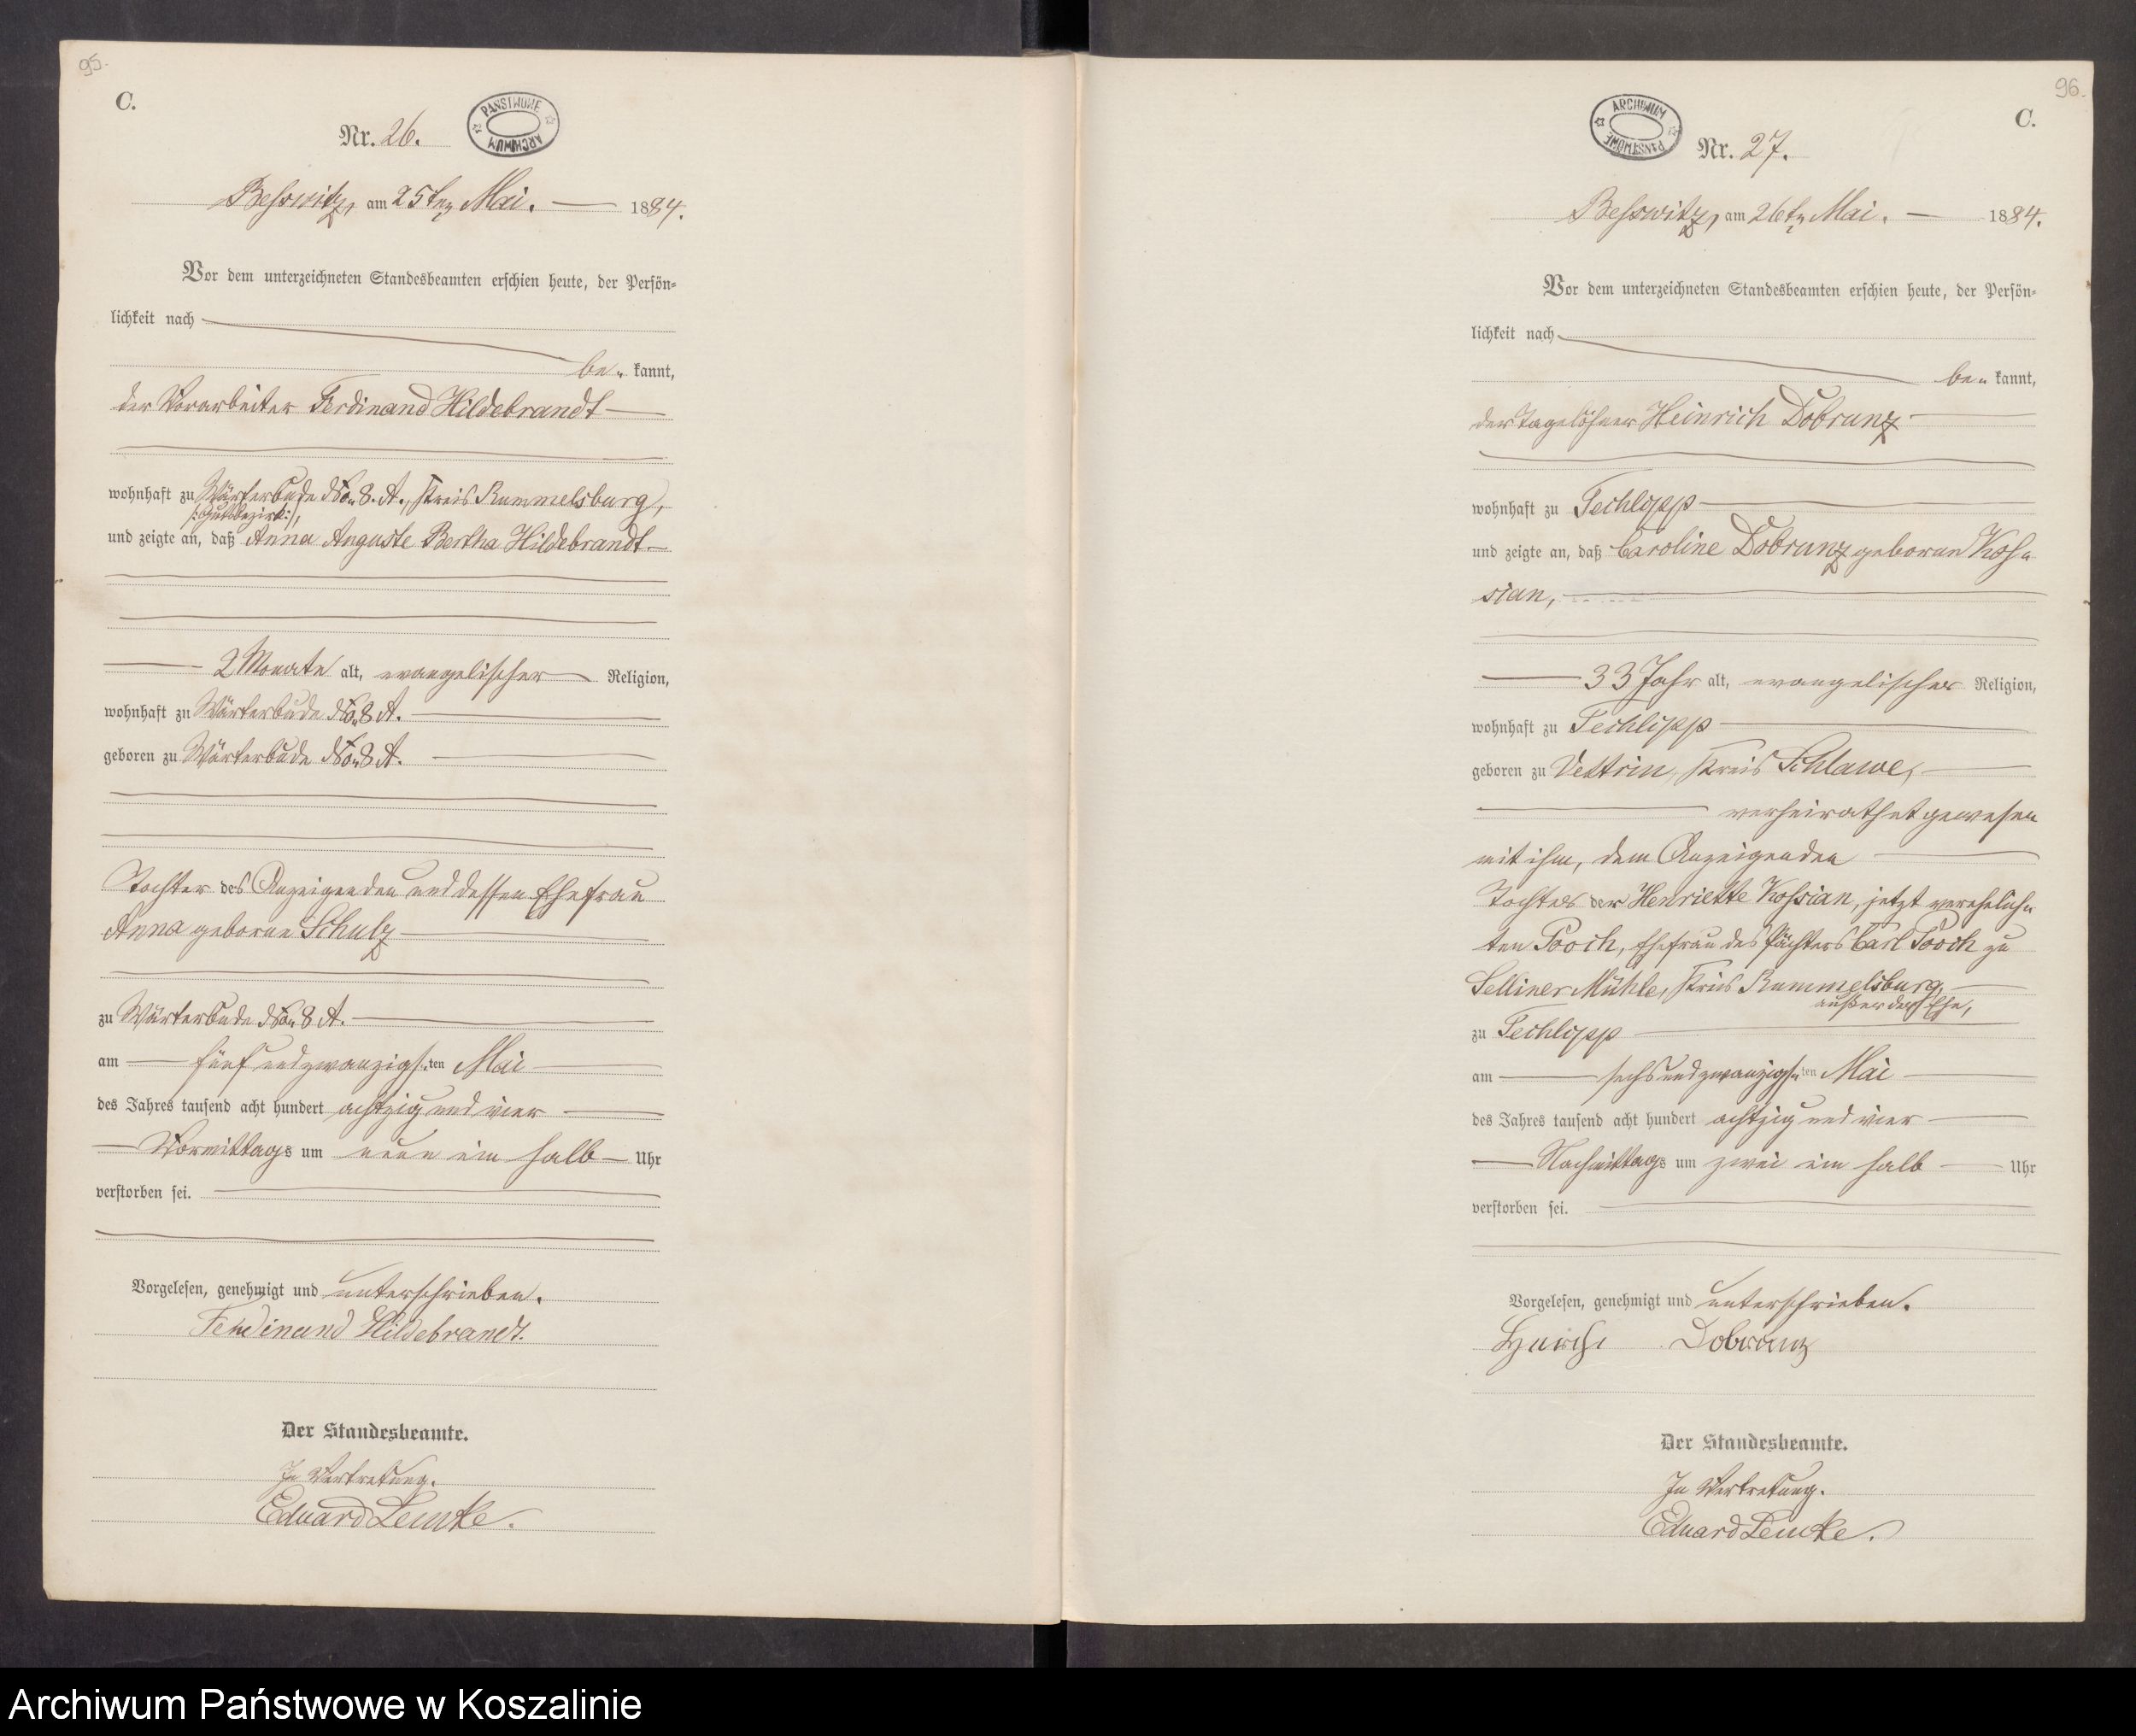 95.
C.
PAŃSTWOWE ARCHIWUM
Nr. 26.
Besswitz, am 25ten Mai. 1884.
Vor dem unterzeichneten Standesbeamten erschien heute, der Persön-
lichkeit nach
be- kannt,
der Vorarbeiter Ferdinand Hildebrandt
wohnhaft zu Wärterbude No. 8. A., Kreis Rummelsburg,
/:Gutsbezirk:/,
und zeigte an, daß Anna Auguste Bertha Hildebrandt
2 Monate alt, evangelischer Religion,
wohnhaft zu Wärterbude No. 8 A.
geboren zu Wärterbude No. 8 A.
Tochter des Anzeigenden und dessen Ehefrau
Anna geborne Schulz
zu Wärterbude No. 8 A.
am fünf und zwanzigsten Mai
des Jahres tausend acht hundert achtzig und vier
Vormittags um neun ein halb Uhr
verstorben sei.
Vorgelesen, genehmigt und unterschrieben.
Ferdinand Hildebrandt.
Der Standesbeamte.
In Vertretung.
Eduard Lemke.
96.
C.
ARCHIWUM PAŃSTWOWE
Nr. 27.
Besswitz, am 26ten Mai. 1884.
Vor dem unterzeichneten Standesbeamten erschien heute, der Persön-
lichkeit nach
be- kannt,
der Tagelöhner Heinrich Dobrunz
wohnhaft zu Techlipp
und zeigte an, daß Caroline Dobrunz geborne Kos-
sian,
33 Jahr alt, evangelischer Religion,
wohnhaft zu Techlipp
geboren zu Vettrin, Kreis Schlawe,
verheirathet gewesen
mit ihm, dem Anzeigenden
Tochter der Henriette Kossian, jetzt verehelich-
ten Pooch, Ehefrau des Pächters Carl Pooch zu
Selliner Mühle, Kreis Rummelsburg,
außer der Ehe,
zu Techlipp
am sechs und zwanzigsten Mai
des Jahres tausend acht hundert achtzig und vier
Nachmittags um zwei ein halb Uhr
verstorben sei.
Vorgelesen, genehmigt und unterschrieben.
Dobrunz
Der Standesbeamte.
In Vertretung.
Eduard Lemke.
Archiwum Państwowe w Koszalinie